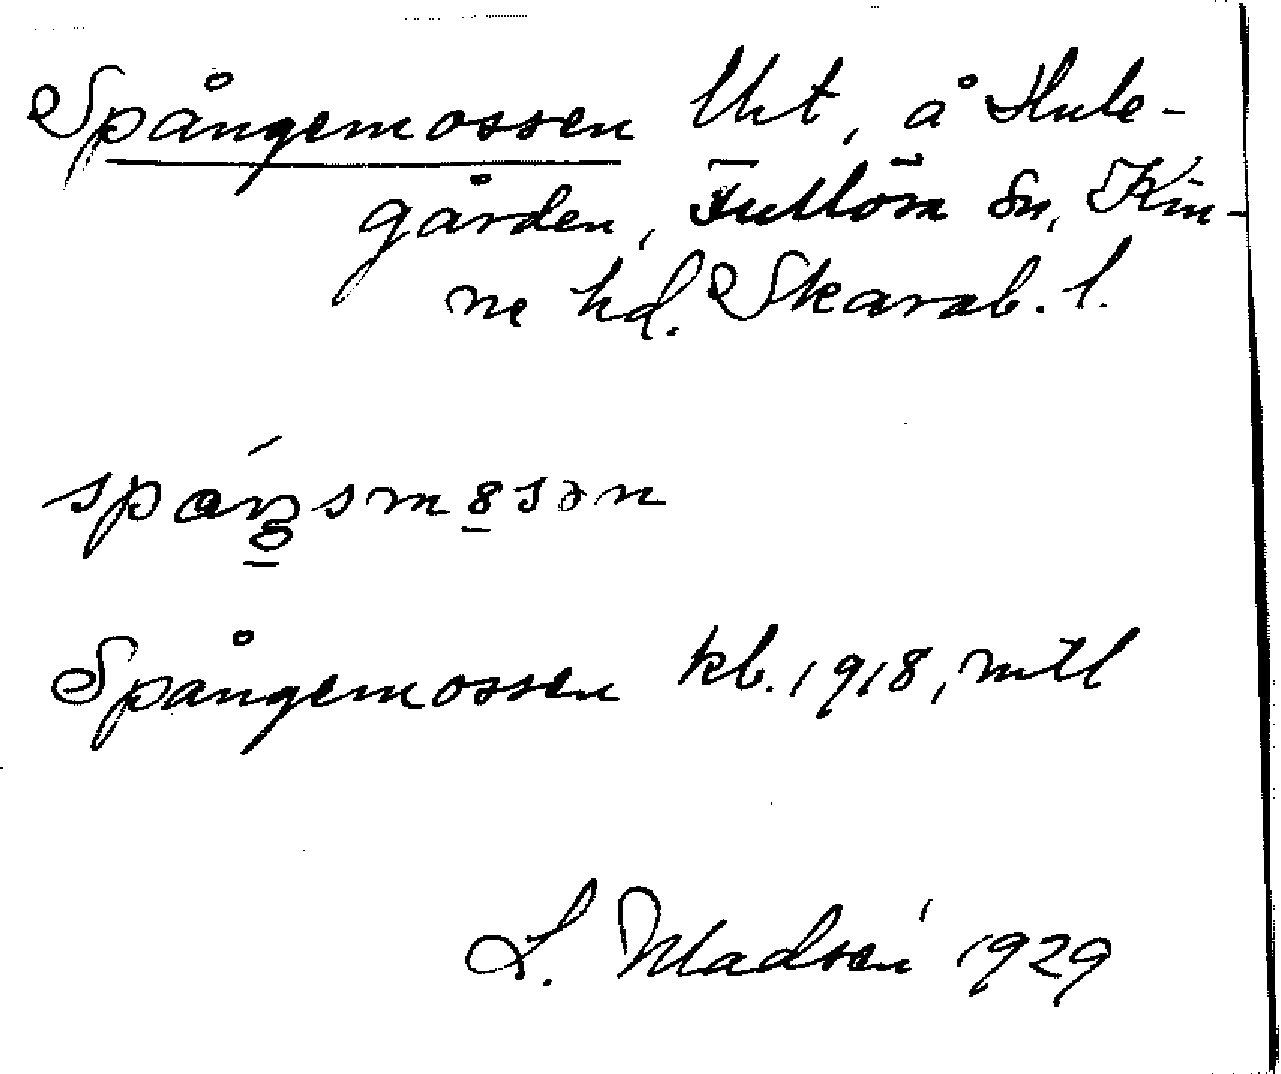 Spångemossen Uht, å Hule-
gården, Fullösa Sn, Kin-
ne hd. Skarab. l.
Spångemossen kb. 1918, mtl
L. Madsén 1929